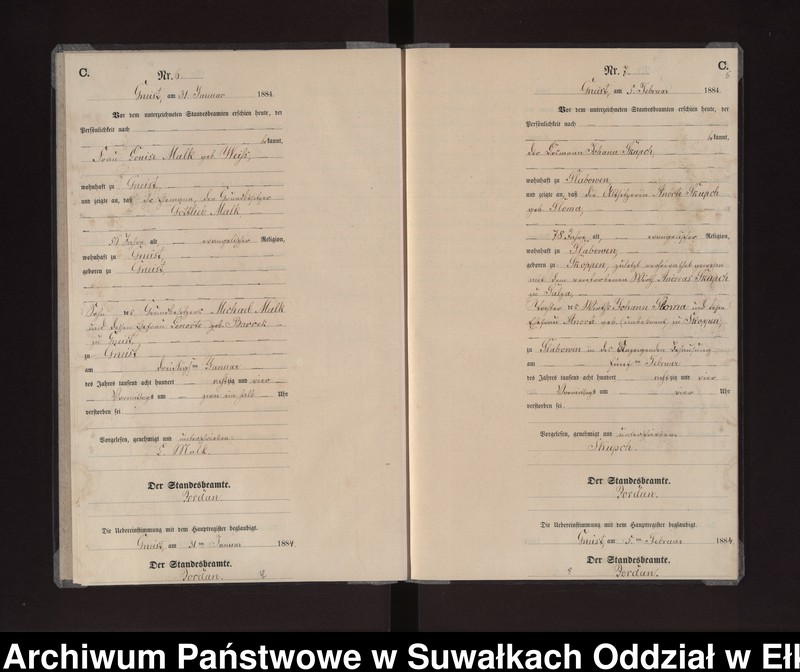 C.
Nr. 6
Gneist, am 31. Januar 1884.
Vor dem unterzeichneten Standesbeamten erschien heute, der
Persönlichkeit nach
bekannt,
Frau Louise Malk geb. Weiß,
wohnhaft zu Gneist,
und zeigte an, daß ihr Ehemann, der Grundbesitzer
Gottlieb Malk
51 Jahre alt, evangelischer Religion,
wohnhaft zu Gneist,
geboren zu Gneist
Sohn des Grundbesitzers Michael Malk
und dessen Ehefrau geb.
zu Gneist,
zu Gneist
am dreißigsten Januar
des Jahres tausend acht hundert achtzig und vier
Vormittags um halb Uhr
verstorben sei
Vorgelesen, genehmigt und unterschrieben
L. Malk.
Der Standesbeamte.
Jordan.
Die Uebereinstimmung mit dem Hauptregister beglaubigt.
Gneist, am 31ten Januar 1884
Der Standesbeamte.
Jordan.
C.
Nr. 7
Gneist, am 5. Februar 1884.
Vor dem unterzeichneten Standesbeamten erschien heute, der
Persönlichkeit nach
bekannt,
der Johann Skupch,
wohnhaft zu Slabowen,
und zeigte an, daß die Skupch
geb. Sloma,
78 Jahre alt, evangelischer Religion,
wohnhaft zu Slabowen,
geboren zu Skoppen, zuletzt verheirathet gewesen
mit dem verstorbenen Wirth Andreas Skupch
zu
Tochter des Wirths Johann Sloma und dessen
Ehefrau geb. (unbekannt) zu Skoppen,
zu Slabowen in der
am fünften Februar
des Jahres tausend acht hundert achtzig und vier
Vormittags um vier Uhr
verstorben sei
Vorgelesen, genehmigt und unterschrieben
Skupch.
Der Standesbeamte.
Jordan.
Die Uebereinstimmung mit dem Hauptregister beglaubigt.
Gneist, am 5ten Februar 1884
Der Standesbeamte.
Jordan.
Archiwum Państwowe w Suwałkach Oddział w Eł